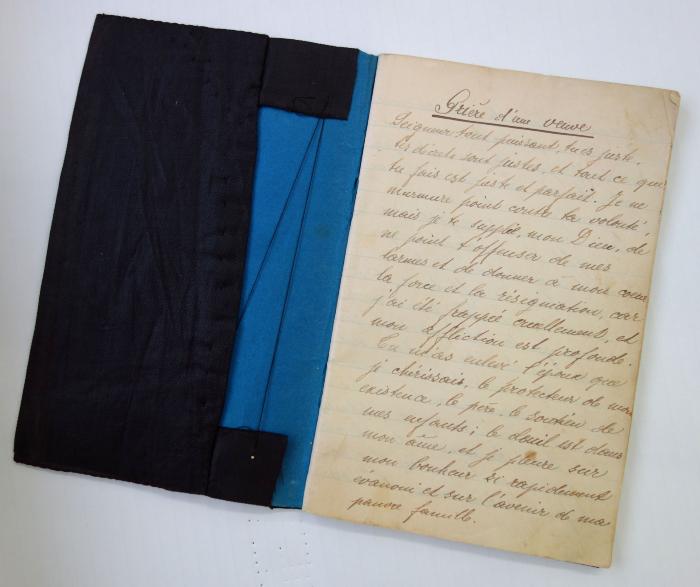 Prière d'une veuve
Seigneur tout puissant, tu es juste,
tes décrets sont justes, et tout ce que
tu fais est juste et parfait. Je ne
murmure point contre ta volonté,
mais je te supplie, mon Dieu, de
ne point t'offenser de mes
larmes et de donner à mon cœur
la force et la résignation, car
j'ai été frappée cruellement, et
mon affliction est profonde.
Tu m'as enlevé l'époux que
je chérissais, le protecteur de mon
existence, le père, le soutien de
mes enfants; le deuil est dans
mon âme, et je pleure sur
mon bonheur si rapidement
évanoui et sur l'avenir de ma
pauvre famille.